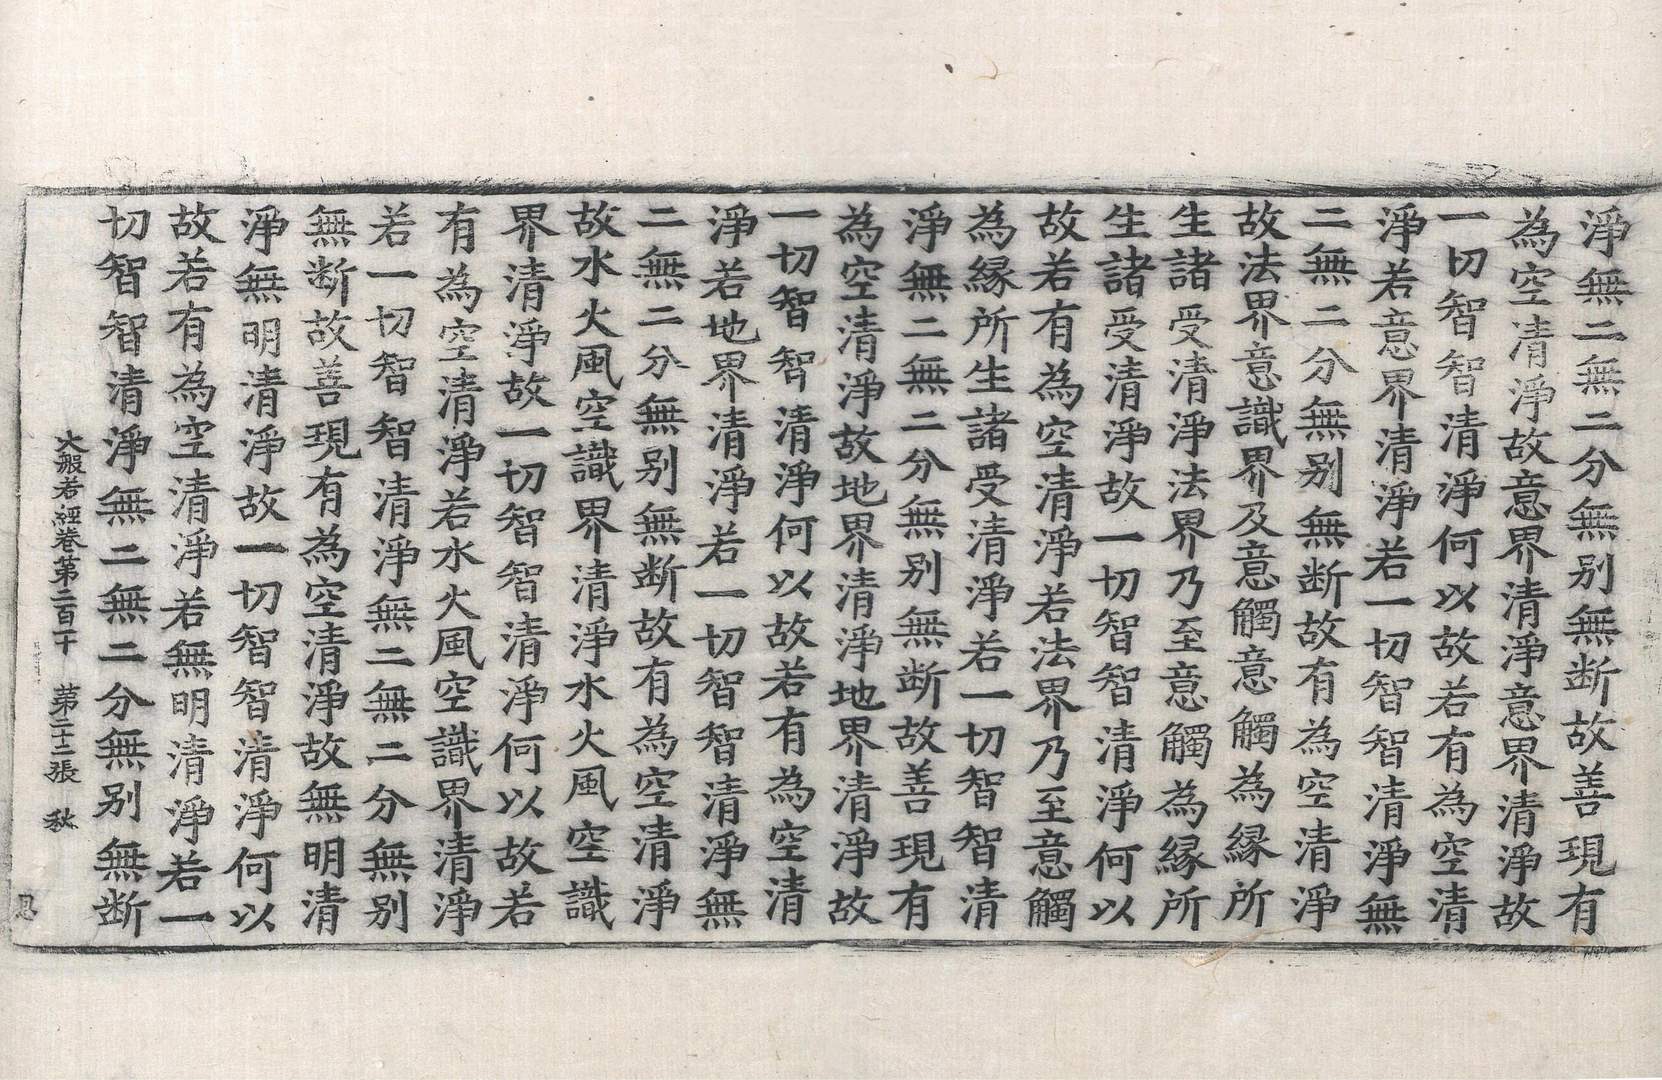 淨無二無二分無别無断故善現有
為空清淨故意界清淨意界清淨故
一切智智清淨何以故若有為空清
淨若意界清淨若一切智智清淨無
二無二分無别無断故有為空清淨
故法界意識界及意觸意觸為縁所
生諸受清淨法界乃至意觸為縁所
生諸受清淨故一切智智清淨何以
故若有為空清淨若法界乃至意觸
為縁所生諸受清淨若一切智智清
淨無二無二分無别無断故善現有
為空清淨故地界清淨地界清淨故
一切智智清淨何以故若有為空清
淨若地界清淨若一切智智清淨無
二無二分無别無断故有為空清淨
故水火風空識界清淨水火風空識
界清淨故一切智智清淨何以故若
有為空清淨若水火風空識界清淨
若一切智智清淨無二無二分無别
無断故善現有為空清淨故無明清
淨無明清淨故一切智智清淨何以
故若有為空清淨若無明清淨若一
切智智清淨無二無二分無别無断
大般若經卷第二百 第二十二張 秋